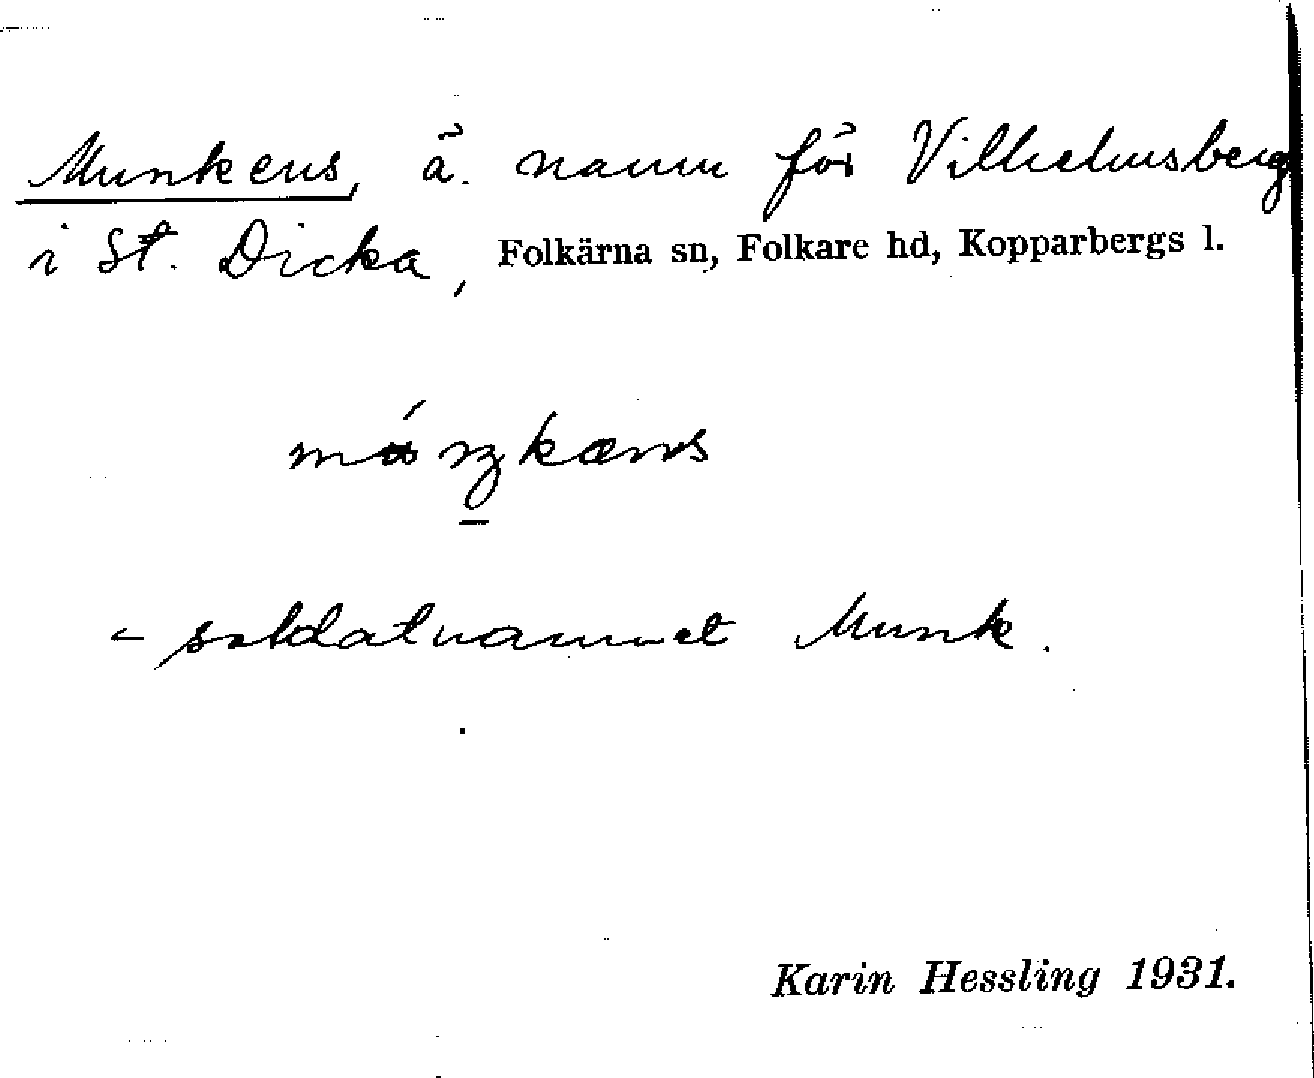 Munkens, ä. namn för Vilhelmsberg
i St. Dicka, Folkärna sn, Folkare hd, Kopparbergs l.
< soldatnamnet Munk.
Karin Hessling 1931.